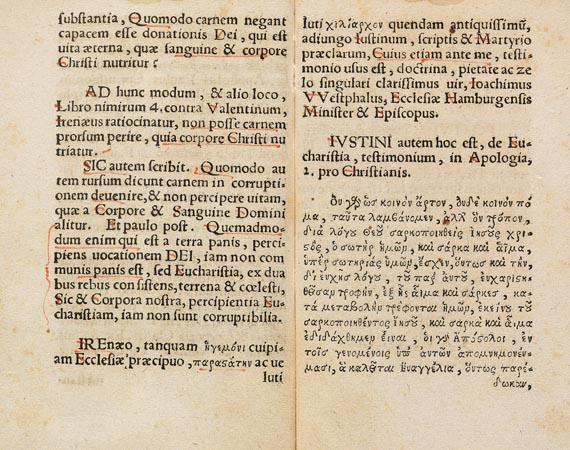 substantia, Quomodo carnem negant
capacem esse donationis Dei, qui est
uita æterna, quæ sanguine & corpore
Christi nutritur?
AD hunc modum, & alio loco,
Libro nimirum 4. contra Valentinum,
Irenæus ratiocinatur, non posse carnem
prorsum perire, quia corpore Christi nu
triatur.
SIC autem scribit. Quomodo au
tem rursum dicunt carnem in corrupti
onem deuenire, & non percipere uitam,
quæ a Corpore & Sanguine Domini
alitur. Et paulo post. Quemadmo-
dum enim qui est a terra panis, perci-
piens uocationem DEI, iam non com
munis panis est, sed Eucharistia, ex dua
bus rebus consistens, terrena & cœlesti,
Sic & Corpora nostra, percipientia Eu-
charistiam, iam non sunt corruptibilia.
IREnæo, tanquam ἡγεμόνι cuipi-
am Ecclesiæ præcipuo, παραστάτην ac ue
luti
luti χιλίαρχον quendam antiquissimū,
adiungo Iustinum, scriptis & Martyrio
præclarum, Cuius etiam ante me, testi-
monio usus est, doctrina, pietate ac ze
lo singulari clarissimus uir, Ioachimus
VVestphalus, Ecclesiæ Hamburgensis
Minister & Episcopus.
IVSTINI autem hoc est, de Eu-
charistia, testimonium, in Apologia,
2. pro Christianis.
Ὀυ γὰρ ὡς κοινὸν ἄρτον, ὀυδὲ κοινὸν πό
μα, ταῦτα λαμβάνομεν, ἀλλ ὃν τρόπον,
διὰ λόγου Θεοῦ σαρκοποιηθεὶς Ἰησοῦς χρι
στὸς, ὁ σωτὴρ ἡμῶν, καὶ σάρκα καὶ ἆιμα,
ὑπὲρ σωτηρίας ὑμῶν, ἔσχεν, ὅυτως καὶ τὴν,
δι ἐυχῆς λόγου, τοῦ παρ ἀυτοῦ, ἐυχαρισηθε
θσαν τροφὴν, ἐξ ἧς ἆιμα καὶ σάρκες, κα-
τὰ μεταβολὴν τρέφονται ἡμῶν, ἐκείνου τοῦ
σαρκοποιηθέντος ἰησοῦ, καὶ σάρκα καὶ ἆιμα
ἐδιδάχθημεν εἶναι, ὁι γὰρ Ἀπόστολοι, ἐν
τοῖς γενομένοις ὑπ ἀυτῶν ἀπομνημονέυ-
μασι, ἃ καλεῖται Ἐυαγγέλια, ὅυτως παρέ-
δωκαν,